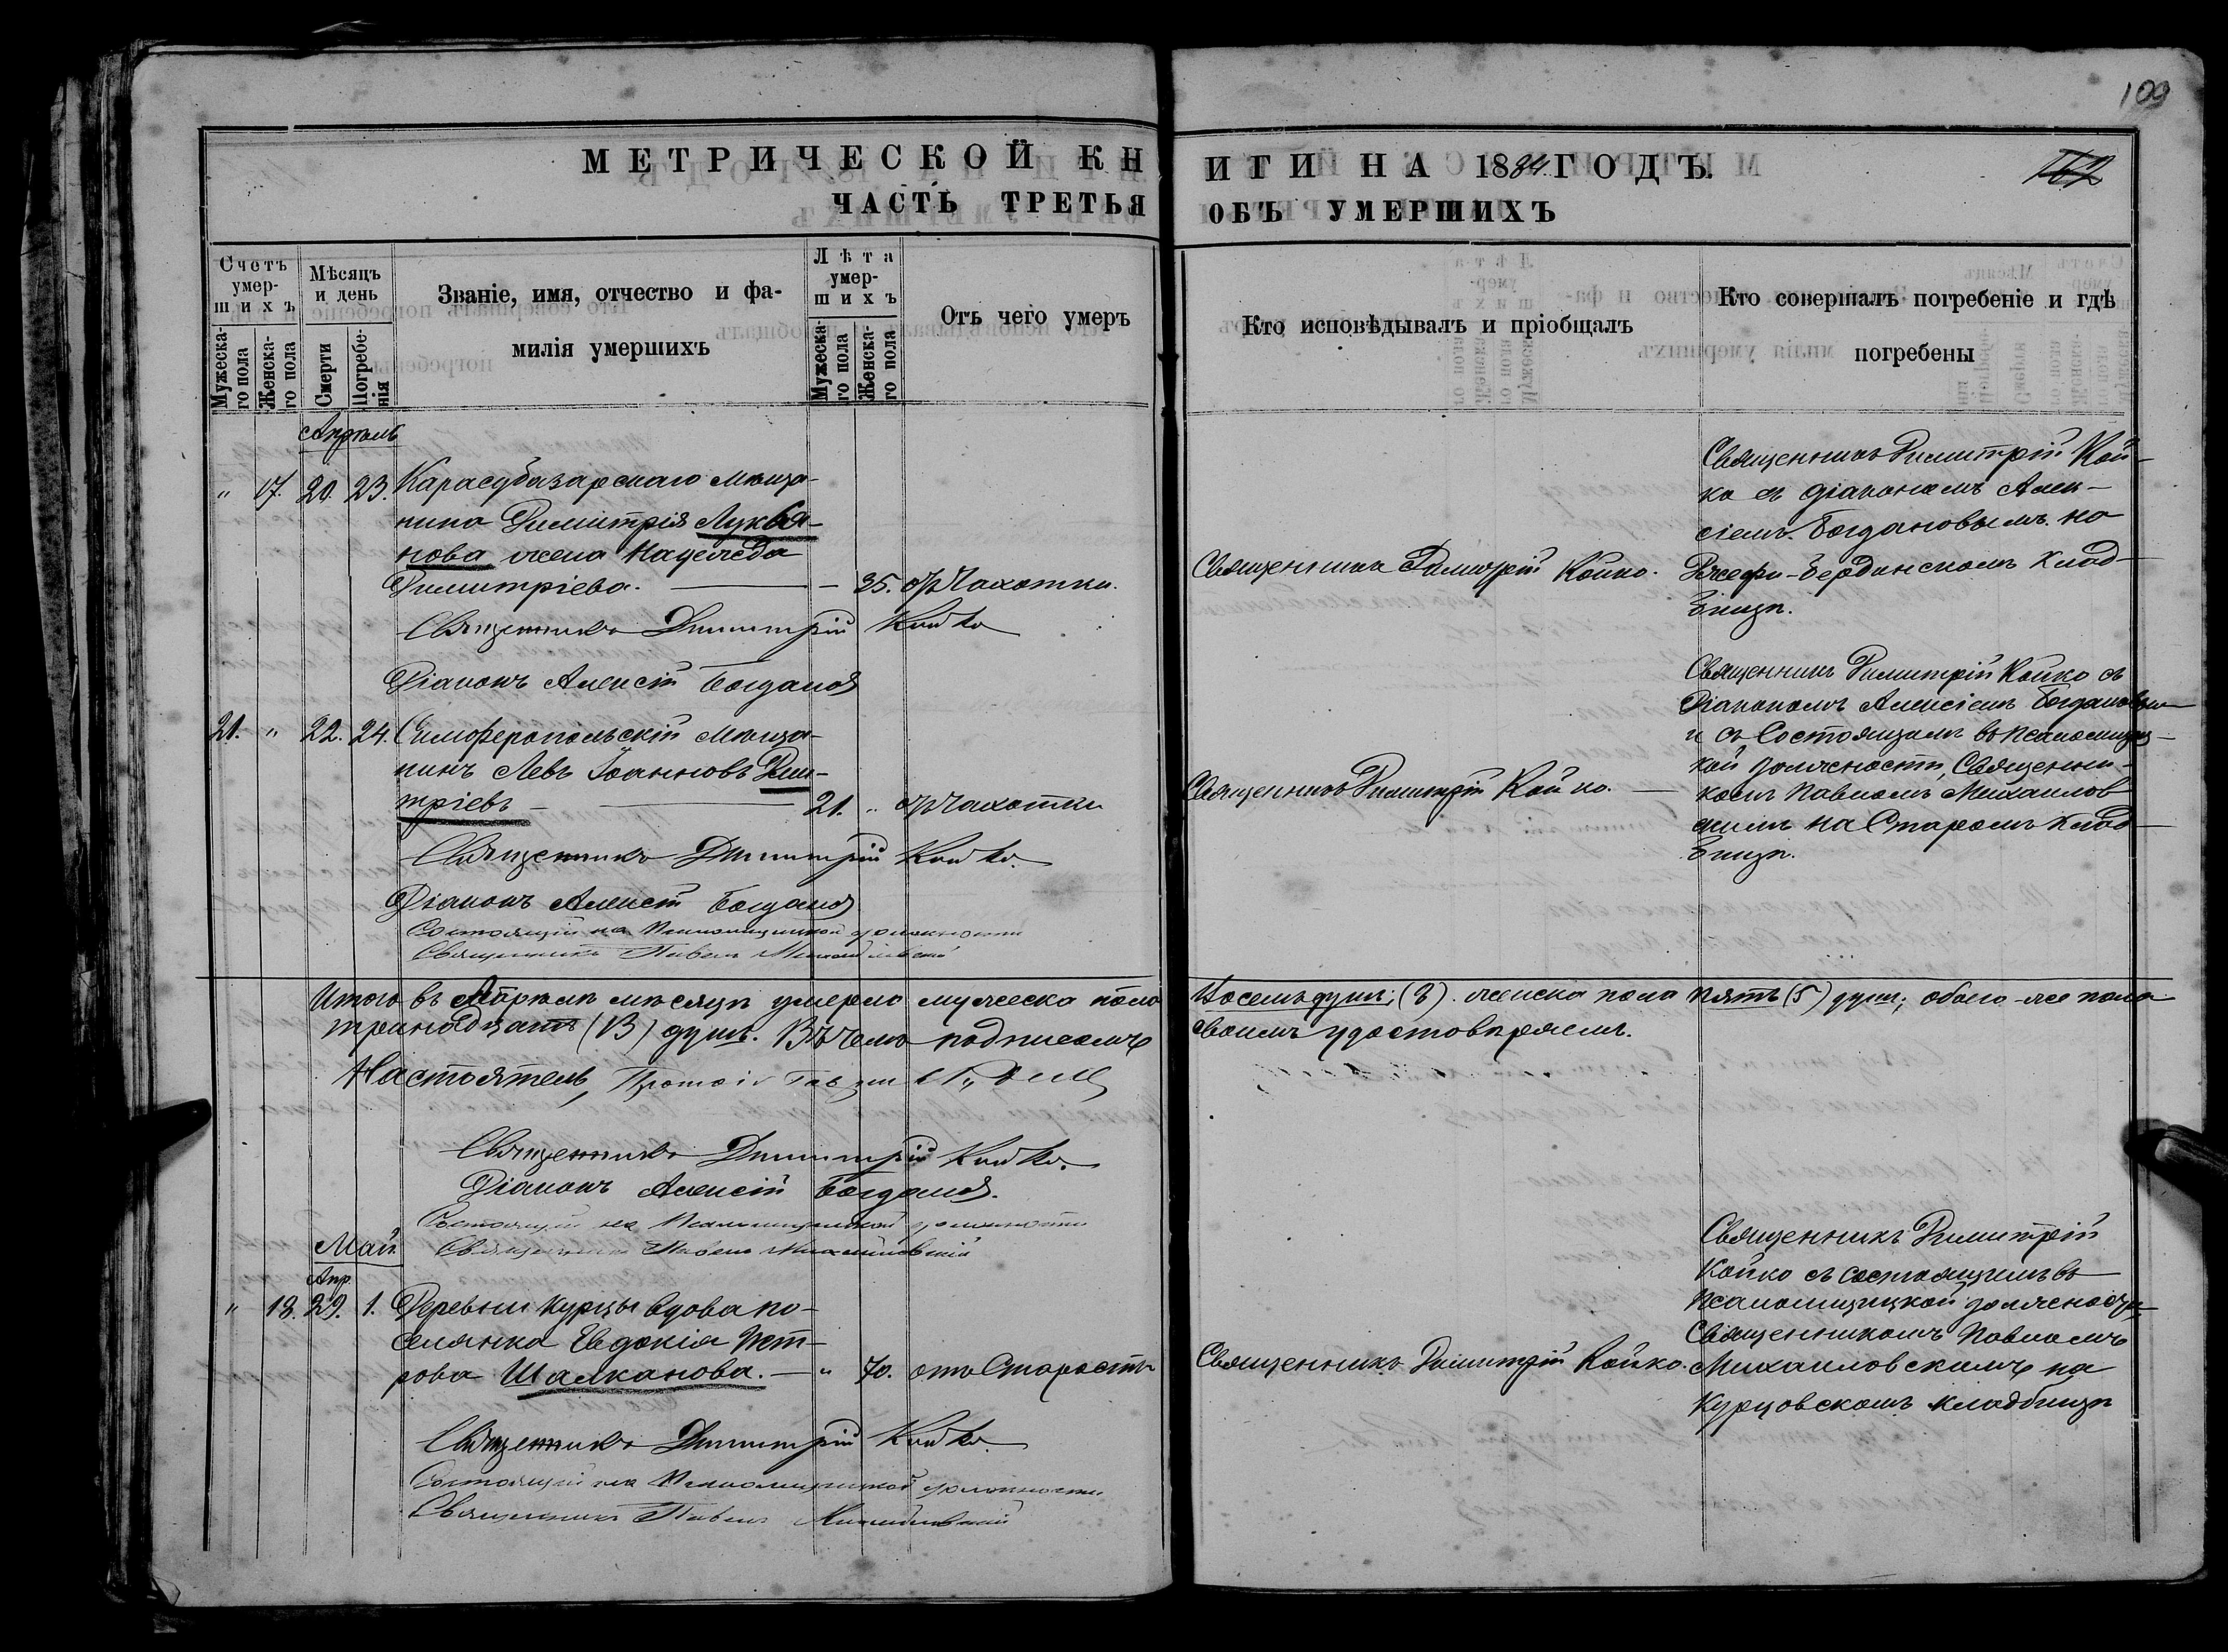 109
МЕТРИЧЕСКОЙ КНИГИ НА 1884 ГОДЪ.
162
ЧАСТЬ ТРЕТЬЯ ОБЪ УМЕРШИХЪ
Счетъ умерших ъ
Мужескаго пола
Женскаго пола
Мѣсяцъ и день
Смерти
Погребенія
Званіе, имя, отчество и фа-
милія умершихъ
Лѣта умерших ъ
Мужескаго пола
Женскаго пола
Отъ чего умеръ
Кто исповѣдывалъ и пріобщалъ
Кто совершалъ погребеніе и гдѣ
погребены
Апрѣль
" 17. 20. 23. Карасубазарскаго мѣща-
нина Димитрія Лукья-
нова жена
Димитріева. — 35. отъ Чахотки.
Священникъ Димитрій Койко.
Священникъ Димитрій Кой-
ко съ діакономъ Алек-
сіемъ Богдановымъ на
клад-
бищѣ.
Священникъ Димитрій Койко
Діаконъ Алексій Богданов
21. " 22. 24. Симферопольскій мѣща-
нинъ Левъ Іоанновъ Дим-
тріевъ — 21. " отъ Чахотки
Священникъ Димитрій Койко.
Священникъ Димитрій Койко съ
Діакономъ Алексіемъ Богдановым
и съ Состоящимъ въ псаломщиц-
кой должности, Священни-
комъ Павломъ Михаилов
скимъ на Старомъ клад-
бищѣ.
Священникъ Димитрій Койко.
Діаконъ Алексій Богданов
Состоящій на Псаломщицкой должности
Священникъ Павелъ Михайловскій
Итого въ Апрѣлѣ мѣсяцѣ умерло мужеска пола Восемь душъ; (8). женска пола пять (5) душъ; обоего-же пола
тринадцать (13) душъ. Въ чемъ подписомъ своимъ удостовѣряемъ.
Настоятель,
Священникъ Димитрій Койко.
Діаконъ Алексій Богданов.
Состоящій на Псаломщицкой должности
Священникъ Павелъ Михайловскій
Май
Апр.
" 18. 29. 1. Деревни Курцы вдова по-
селянка Евдокія Пет-
рова Шалканова. — " 70. отъ Старости
Священникъ Димитрій Койко.
Священникъ Димитрій
Койко съ состоящимъ въ
Псаломщицкой должности,
Священникомъ Павломъ
Михаиловскимъ на
Курцовскомъ кладбищѣ
Священникъ Димитрій Койко.
Состоящій на Псаломщицкой должности
Священникъ Павелъ Михайловскій